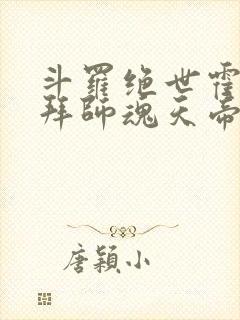 斗羅绝世霍
拜師魂天帝
唐穎小